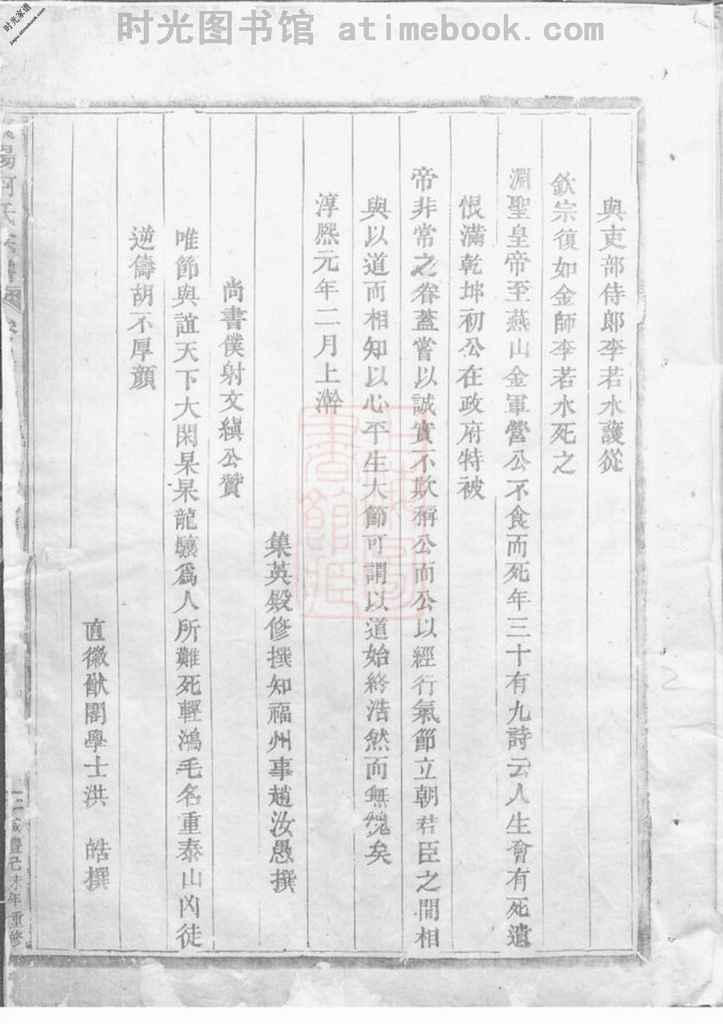 时光图书馆 atimebook.com
时光家谱
與吏部侍郎李若水護從
欽宗復如金師李若水死之
淵聖皇帝至燕山金軍營公不食而死年三十有九詩云人生會有死遺
恨滿乾坤初公在政府特被
帝非常之眷蓋嘗以誠實不欺稱公而公以經行氣節立朝君臣之間相
與以道而相知以心平生大節可謂以道始終浩然而無愧矣
淳熙元年二月上澣
集英殿修撰知福州事趙汝愚撰
尚書僕射文縝公贊
唯節與誼天下大閑杲杲龍驤為人所難死輕鴻毛名重泰山凶徒
逆儔胡不厚顔
直徽猷閣學士洪 皓撰
陽何氏
咸豐己未年重修